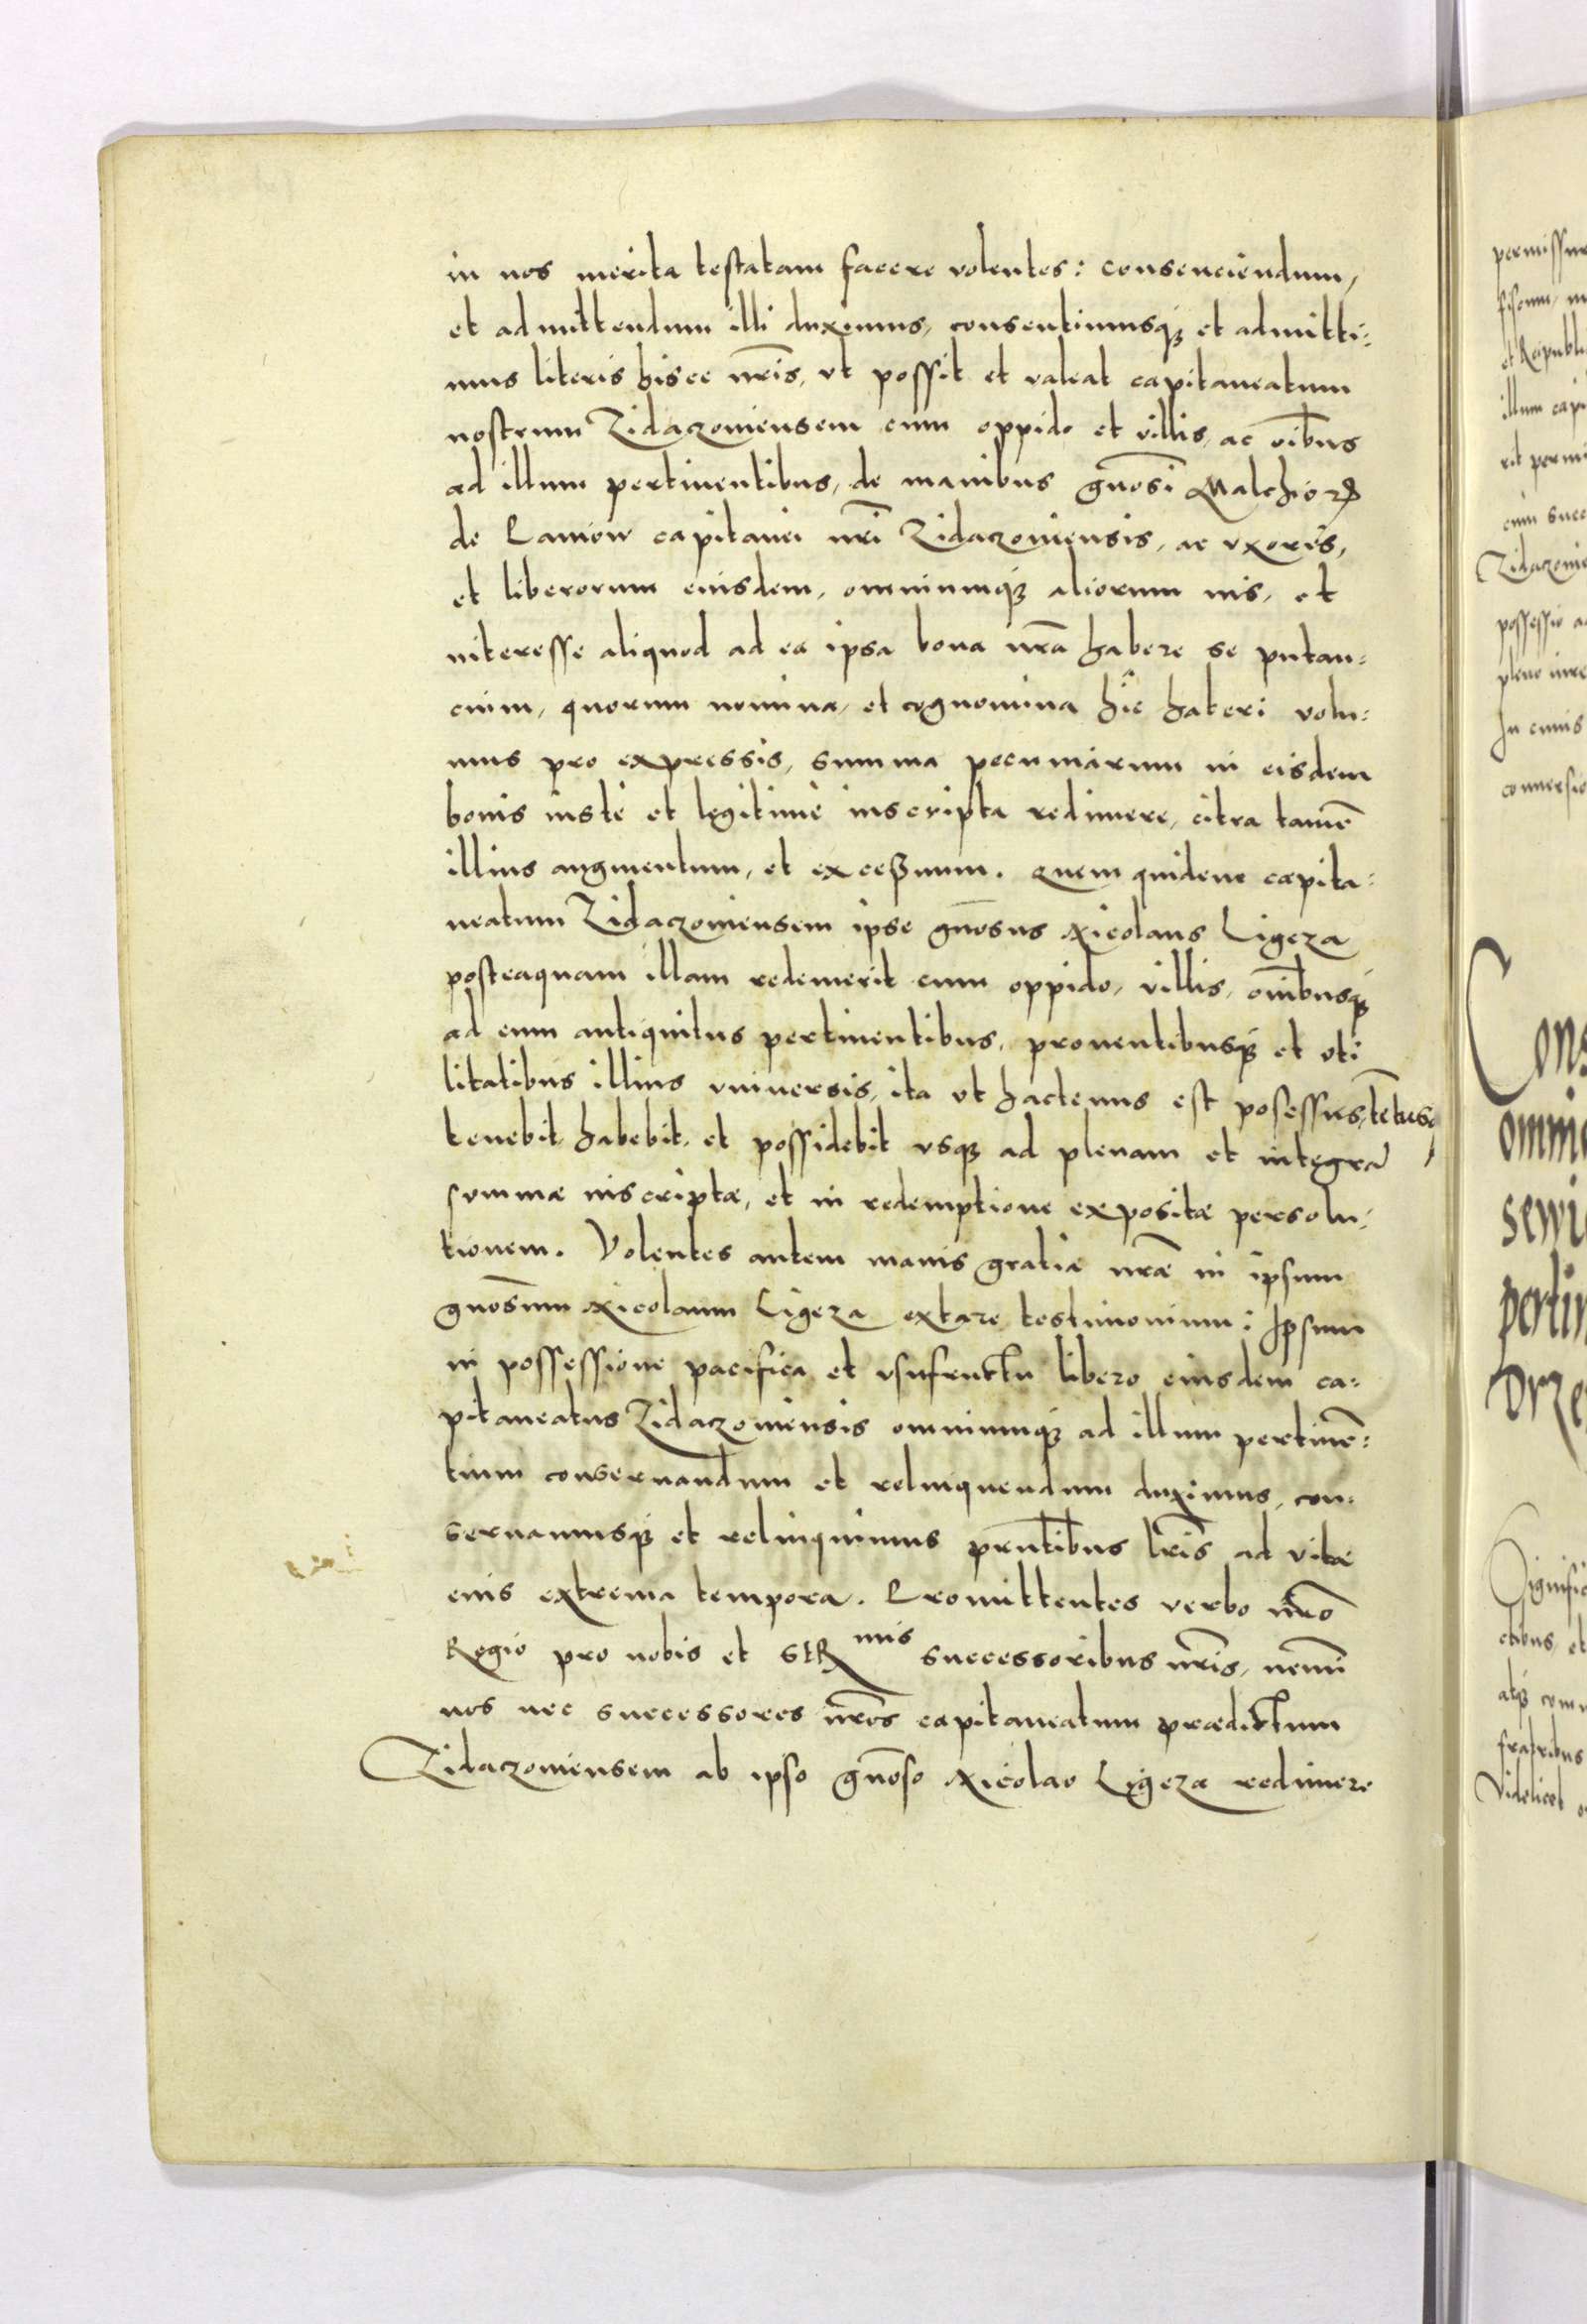 in nos merita testatam facere volentes: consenciendum,
et admittendum illi duximus, consentimusq₃ et admitti:
mus literis hisce nr̃is, vt possit et valeat capitaneatum
nostrum Zidaczoviensem cum oppido et villis, ac oĩbus
ad illum pertinentibus, de manibus gñosi Malchior
de capitanei nr̃i Zidaczoviensis, ac vxoris,
et liberorum eiusdem, omniumq₃ aliorum ius, et
interesse aliquod ad ea ipsa bona nr̃a habere se putan:
cium, quorum nomina, et cognomina hîc haberi volu:
mus pro expressis, summa pecuniarum in eisdem
bonis iustè et legitimè inscripta redimere, citra tamẽ
illius augmentum, et exceßiuum. Quem quidem capita:
neatum Zidaczoviensem ipse gñosus Nicolaus Ligeza
posteaquam illam redemerit cum oppido, villis, om̃ibusq₃
ad eum antiquitus pertinentibus, prouentibusq₃ et vti
litatibus illius vniuersis, ita vt hactenus est posessus, tẽtusq₃
tenebit, habebit, et possidebit vsq₃ ad plenam et integrã
summæ inscriptæ, et in redemptione expositæ persolu:
tionem. Volentes autem maius gratiæ nr̃æ in ipsum
gnõsum Nicolaum Ligeza extare testimonium: Ipsum
in possessione pacifica et vsufructu libero eiusdem ca:
pitaneatus Zidaczoviensis omniumq₃ ad illum pertinẽ:
tium conseruandum et relinquendum duximus, con:
seruamusq₃ et relinquimus prñtibus lr̃is ad vitæ
eius extrema tempora. Promittentes verbo nr̃o
Regio pro nobis et StR mis successoribus nr̃is, nemini
nos nec successores nr̃os capitaneatum prædictum
Zidaczoviensem ab ipso gñoso Nicolao Ligeza redimere
permissur
et Reipubli
illum capi
rit permi
cum succ
Zidaczovie
possessio a
pleno iure
In cuius
conuersio
Cons
omni
sewi
pertin
Drze
Signific
ctibus, et
atq₃ com
fratribus
Videlicet